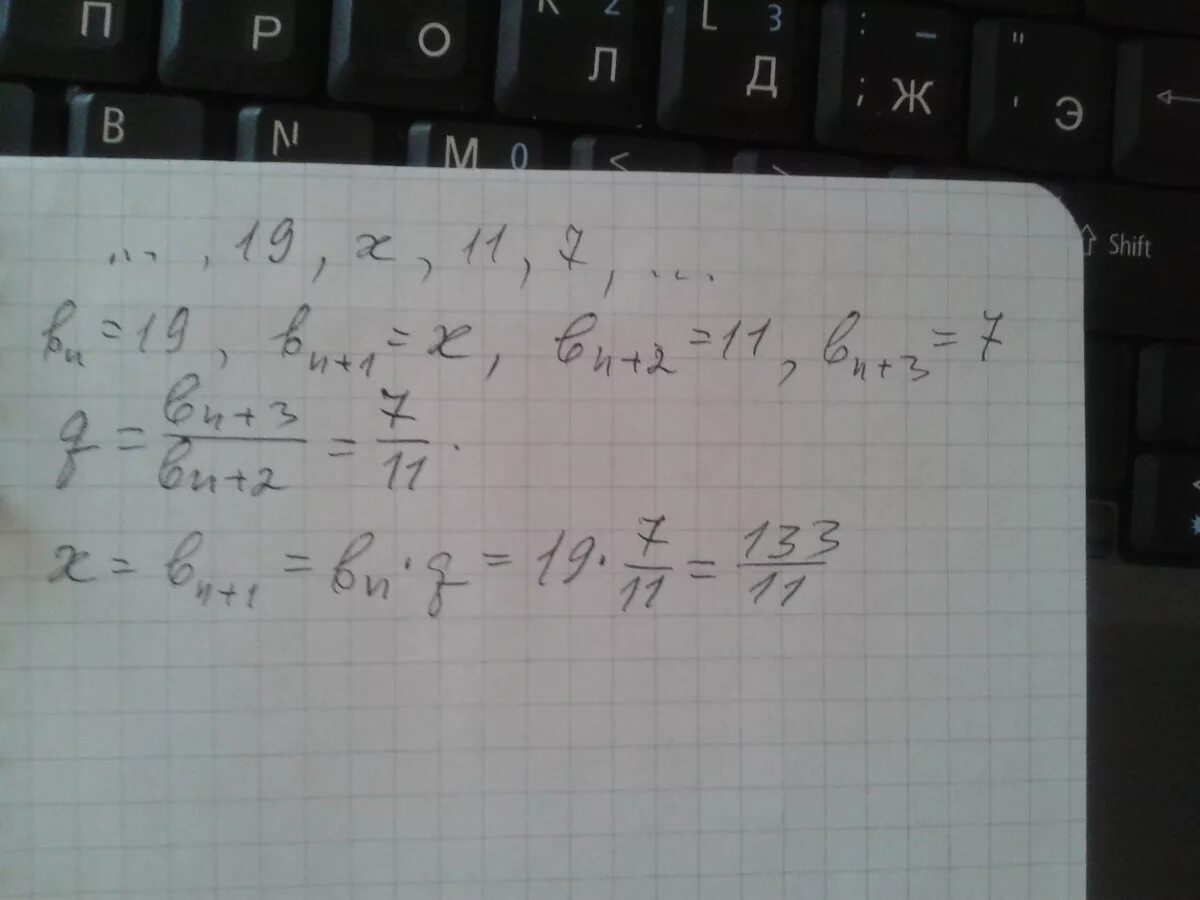 П Р О К 2 Л L 3 Д : ; – Ж " ' Э ←
B N M 0 < >
⇧ Shift
..., 19, x, 11, 7, ...
bₙ = 19, bₙ₊₁ = x, bₙ₊₂ = 11, bₙ₊₃ = 7
q = bₙ₊₃/bₙ₊₂ = 7/11.
x = bₙ₊₁ = bₙ · q = 19 · 7/11 = 133/11